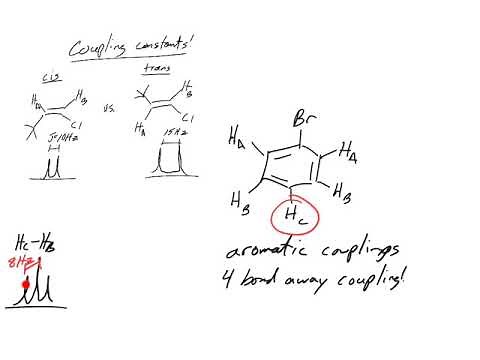 Coupling constants!
cis
trans
H_A
H_B
vs.
H_B
Cl
H_A
Cl
J=10Hz
15Hz
Br
H_A
H_A
H_B
H_B
H_C
aromatic couplings
4 bond away coupling!
H_C-H_B
8Hz